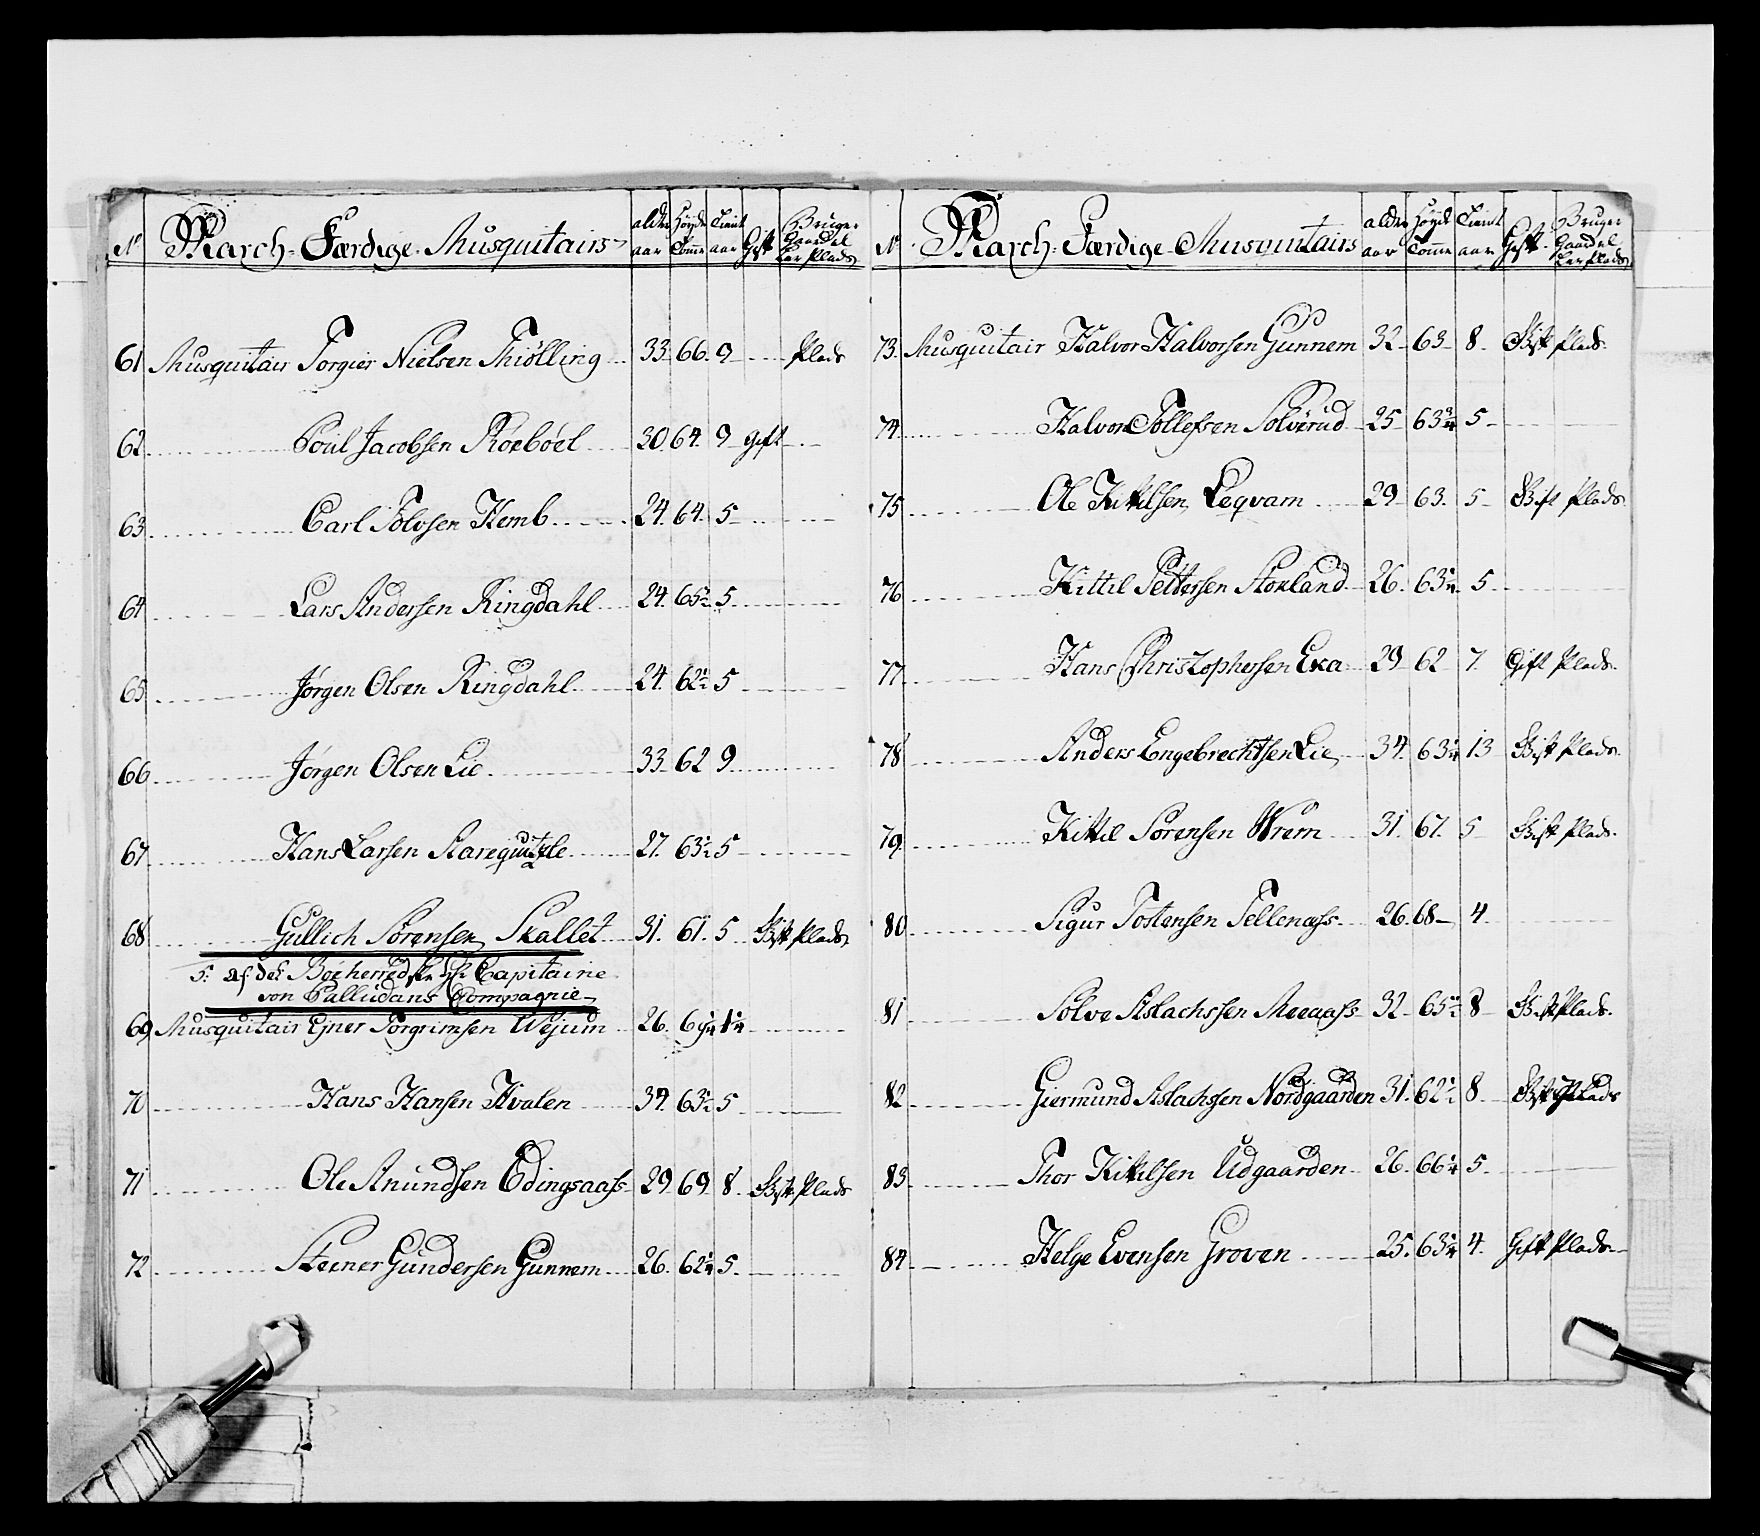 No March-Færdige Musquitairs alder aar Høyde Tomme Tient aar Gift Bruger Gaard el ler Plads
61 Musquitair Torgier Nielsen Thiölling 33 66. 9 Plads
62 Poul Jacobsen Röeböel 30 64. 9 gift
63 Carl Tolvsen Hemb 24. 64. 5
64 Lars Andersen Ringdahl 24. 65½ 5
65 Jörgen Olsen Ringdahl 24. 62½ 5
66 Jörgen Olsen Lie 33 62 9
67 Hans Larsen 27. 63½ 5
68 Gullich Sörensen Skallet 31. 61. 5 Gift Plads
5: af det Böeherredske Hr Capitaine
von Palludans Compagnie
69 Musquitair Ejner Torgrimsen Wejum 26.
70 Hans Hansen Hvalen 34. 63½ 5
71 Ole Anundsen Edingsaass 29 69 8 Gift Plads
72 Steener Gundersen Gunnem 26. 62¼ 5.
No March-Færdige Musquitairs alder aar Høyde Tomme Tient aar Gift Bruger Gaard el ler Plads
73 Musquitair Halvor Halvorsen Gunnem 32 63 8 Gift Plads.
74 Halvor Tollefsen Solverud 25 63¾ 5
75 Ole Kittilsen Leqvam 29 63. 5 Gift Plads
76 Kittil Pettersen Storland 26. 63¼ 5
77 Hans Christophersen Eka 29 62 7. Gift Plads.
78 Anders Engebrechtsen Lie 34. 63¼ 13 Gift Plads.
79 Kittil Sörensen Wrem 31. 67. 5 Gift Plads.
80 Sigur Tostensen Tellenæss 26. 68 4
81 Solve Aslachssen 32 65½ 8 Gift Plads.
82 Giermund Aslachssen Nordgaarden 31. 62½ 8 Gift Plads
83 Thor Kittilsen Udgaarden 26. 66¼ 5.
84 Helge Evensen Groven 25. 63¼ 4. Gift Plads